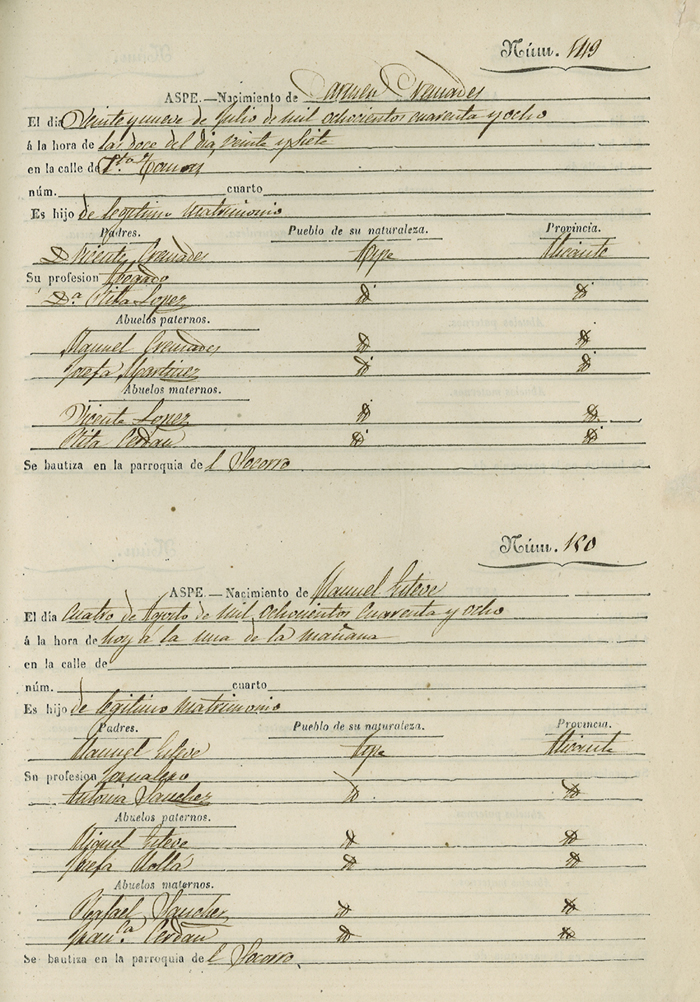 Núm. 149
ASPE.—Nacimiento de Carmen Cremades
El dia Veinte y nueve de Julio de mil ochocientos cuarenta y ocho
á la hora de las doce del dia veinte y siete
en la calle de
núm. cuarto
Es hijo de legitimo matrimonio
Padres. Pueblo de su naturaleza. Provincia.
D. Vicente Cremades Aspe Alicante
Su profesion Abogado
Da. Rita Lopez id id
Abuelos paternos.
Manuel Cremades id id
Josefa Martinez id id
Abuelos maternos.
Vicente Lopez id id
Rita Cerdan id id
Se bautiza en la parroquia de l Socorro
Núm. 150
ASPE.—Nacimiento de Manuel Esteve
El dia cuatro de Agosto de mil ochocientos cuarenta y ocho
á la hora de hoy a la una de la mañana
en la calle de
núm. cuarto
Es hijo de legitimo matrimonio
Padres. Pueblo de su naturaleza. Provincia.
Manuel Esteve Aspe Alicante
Su profesion Jornalero
Antonia Sanchez id id
Abuelos paternos.
Miguel Esteve id id
Josefa Mollá id id
Abuelos maternos.
Rafael Sanchez id id
Fran.ca Cerdan id id
Se bautiza en la parroquia de l Socorro.